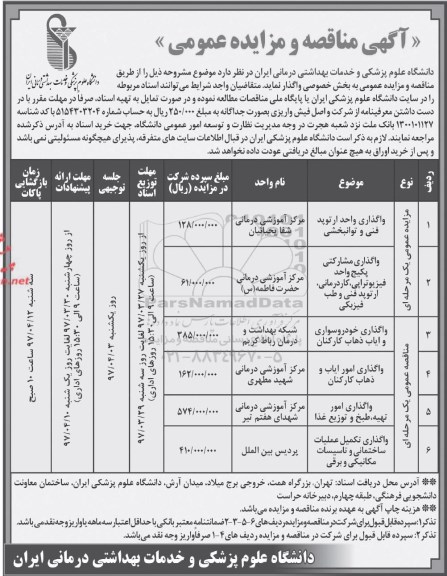 « آگهی مناقصه و مزایده عمومی »
دانشگاه علوم پزشکی و خدمات بهداشتی درمانی ایران
دانشگاه علوم پزشکی و خدمات بهداشتی درمانی ایران در نظر دارد موضوع مشروحه ذیل را از طریق
مناقصه و مزایده عمومی به بخش خصوصی واگذار نماید. متقاضیان واجد شرایط می‌توانند اسناد مربوطه
را در سایت دانشگاه علوم پزشکی ایران یا پایگاه ملی مناقصات مطالعه نموده و در صورت تمایل به تهیه اسناد، صرفاً در مهلت مقرر با در
دست داشتن معرفینامه از شرکت و اصل فیش واریزی بصورت جداگانه به مبلغ ۲۵۰/۰۰۰ ریال به حساب شماره ۵۱۵۴۳۰۳۲۰۴ با کد شناسه
۱۳۰۰۱۰۱۱۲۷ بانک ملت نزد شعبه هجرت در وجه مدیریت نظارت و توسعه امور عمومی دانشگاه، جهت خرید اسناد به آدرس ذکرشده
مراجعه نمایند. لازم به ذکر است دانشگاه علوم پزشکی ایران در قبال اطلاعات سایت های متفرقه، پذیرای هیچگونه مسئولیتی نمی باشد
و پس از خرید اوراق به هیچ عنوان مبالغ دریافتی عودت داده نخواهد شد.
ردیف | نوع | موضوع | نام واحد | مبلغ سپرده شرکت در مزایده (ریال) | مهلت توزیع اسناد | جلسه توجیهی | مهلت ارائه پیشنهادات | زمان بازگشایی پاکات
مزایده عمومی یک مرحله ای
۱ | واگذاری واحد ارتوپد فنی و توانبخشی | مرکز آموزشی درمانی شفا یحیائیان | ۱۲۸/۰۰۰/۰۰۰
۲ | واگذاری مشارکتی پکیج واحد فیزیوتراپی، کاردرمانی، ارتوپد فنی و طب فیزیکی | مرکز آموزشی درمانی حضرت فاطمه (س) | ۶۱/۰۰۰/۰۰۰
مناقصه عمومی یک مرحله ای
۳ | واگذاری خودروسواری و ایاب ذهاب کارکنان | شبکه بهداشت و درمان رباط کریم | ۳۸۵/۰۰۰/۰۰۰
۴ | واگذاری امور ایاب و ذهاب کارکنان | مرکز آموزشی درمانی شهید مطهری | ۱۶۲/۰۰۰/۰۰۰
۵ | واگذاری امور تهیه، طبخ و توزیع غذا | مرکز آموزشی درمانی شهدای هفتم تیر | ۵۷۴/۰۰۰/۰۰۰
۶ | واگذاری تکمیل عملیات ساختمانی و تاسیسات مکانیکی و برقی | پردیس بین الملل | ۴۱۰/۰۰۰/۰۰۰
از روز یکشنبه ۹۷/۰۳/۲۷ لغایت روز سه شنبه ۹۷/۰۳/۲۹ (ساعت ۹ الی ۱۵:۳۰ روزهای اداری)
روز یکشنبه ۹۷/۰۴/۰۳
از روز چهارشنبه ۹۷/۰۳/۳۰ لغایت روز یک شنبه ۹۷/۰۴/۱۰ (ساعت ۹ الی ۱۵:۳۰ روزهای اداری)
سه شنبه ۹۷/۰۴/۱۲ ساعت ۱۰ صبح
ParsNamadData
۰۲۱-۸۸۳۴۹۶۷۰-۵
* آدرس محل دریافت اسناد: تهران، بزرگراه همت، خروجی برج میلاد، میدان آرش، دانشگاه علوم پزشکی ایران، ساختمان معاونت
دانشجویی فرهنگی، طبقه چهارم، دبیرخانه حراست
* هزینه چاپ آگهی به عهده برنده مناقصه و مزایده می‌باشد.
تذکر۱: سپرده قابل قبول برای شرکت در مناقصه و مزایده ردیف های ۶-۵-۳-۲ ضمانتنامه معتبر بانکی با حداقل اعتبار سه ماهه یا واریز وجه نقد می‌باشد.
تذکر۲: سپرده قابل قبول برای شرکت در مناقصه و مزایده ردیف های ۴-۱ صرفاً واریز وجه نقد می باشد.
دانشگاه علوم پزشکی و خدمات بهداشتی درمانی ایران